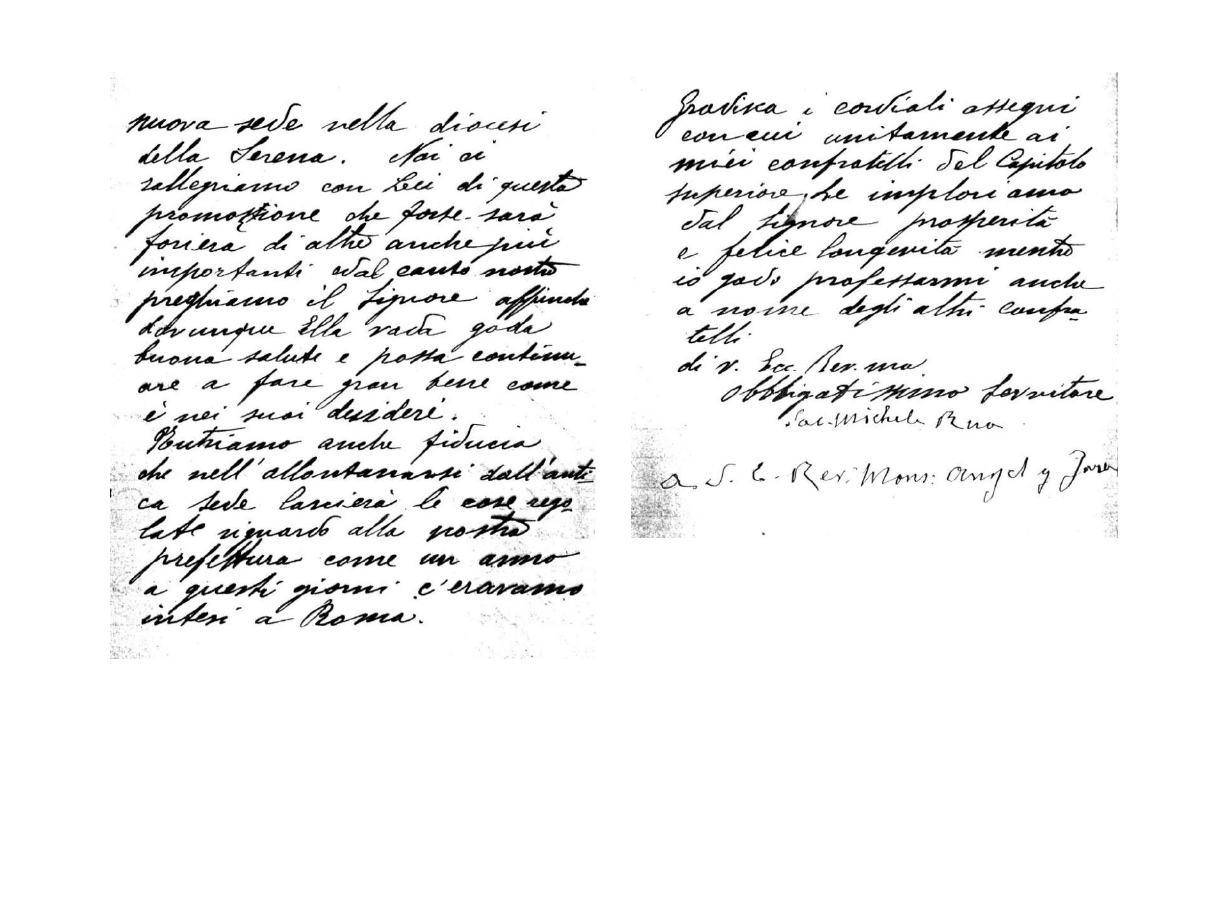 nuova sede nella diocesi
della Serena. Noi ci
rallegriamo con Lei di questa
promozione che forse sarà
foriera di altre anche più
importanti e dal canto nostro
preghiamo il Signore affinchè
dovunque Ella vada goda
buona salute e possa continu-
are a fare gran bene come
è nei suoi desideri.
Nutriamo anche fiducia
che nell'allontanarsi dall'anti-
ca sede lascierà le cose rego-
late riguardo alla nostra
prefettura come un anno
a questi giorni c'eravamo
intesi a Roma.
Gradisca i cordiali ossequi
con cui unitamente ai
miei confratelli del Capitolo
superiore Le imploriamo
dal Signore prosperità
e felice longevità mentre
io godo professarmi anche
a nome degli altri confra-
telli
di V. Ecc. Rev.ma
Obbligatissimo Servitore
Sac. Michele Rua
A S. E. Rev. Mons. Angel y Jara